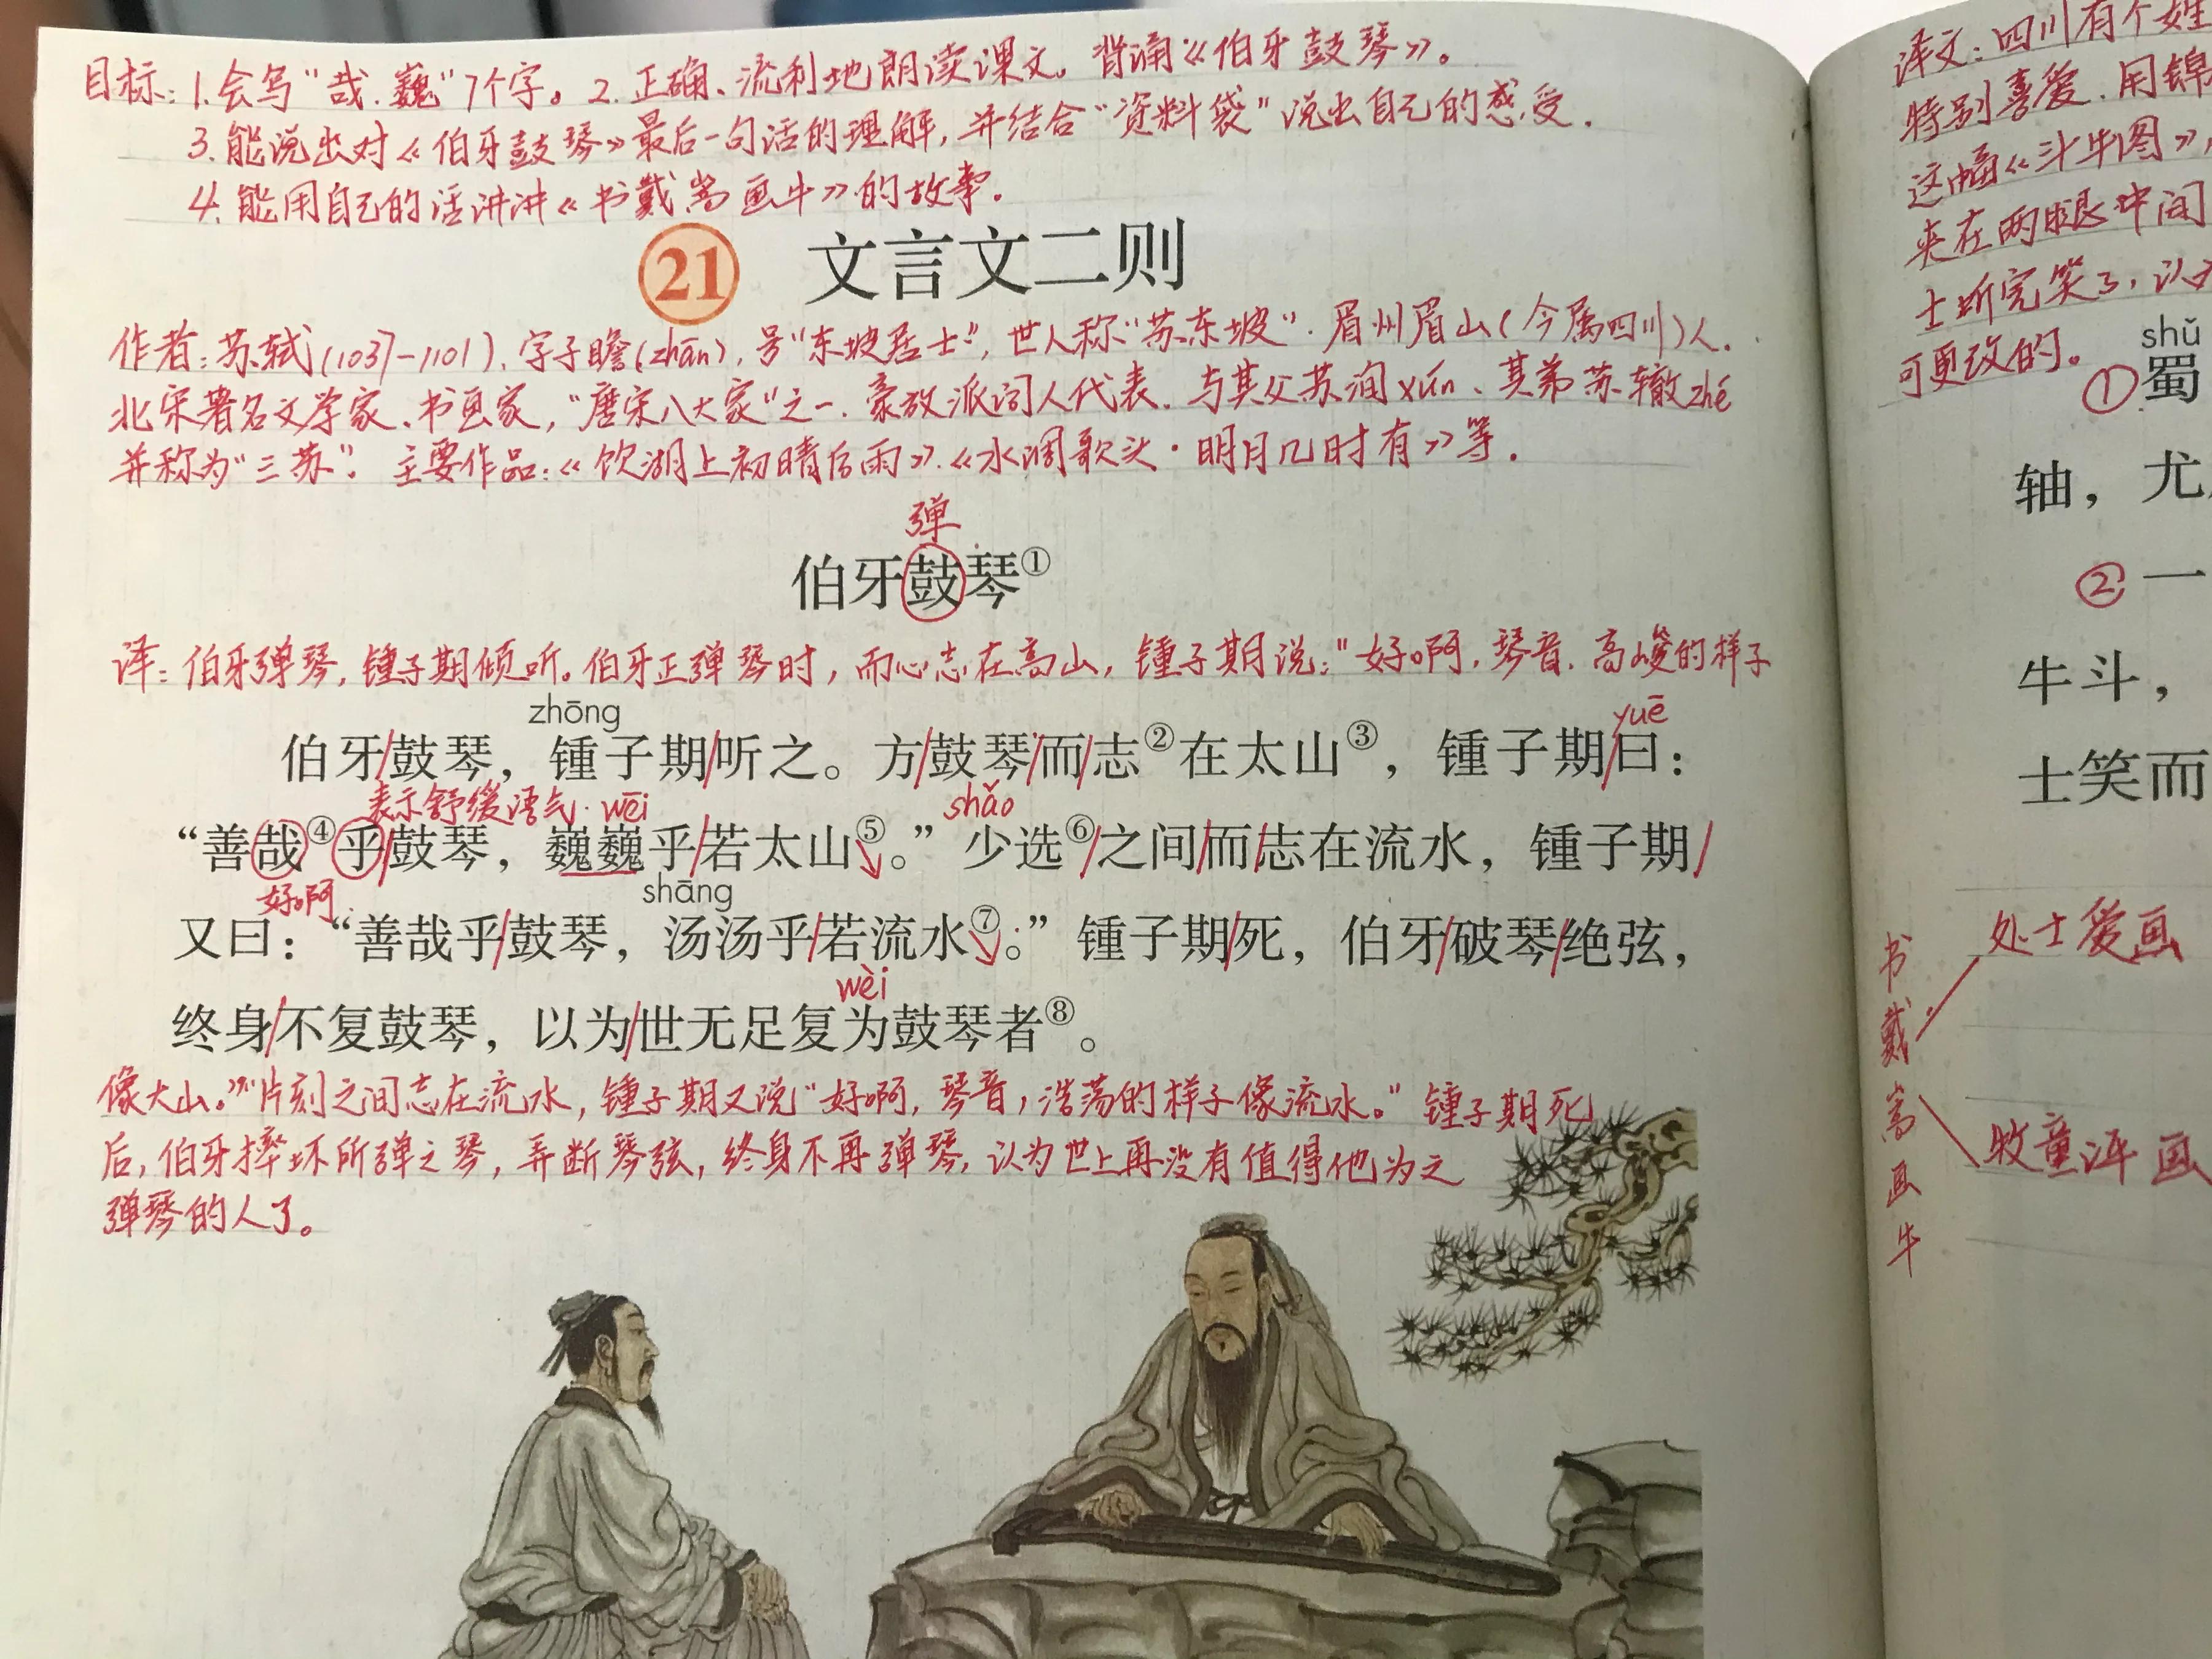 目标：1.会写“哉.巍”7个字。2.正确、流利地朗读课文。背诵《伯牙鼓琴》。
3.能说出对《伯牙鼓琴》最后一句话的理解，并结合“资料袋”说出自己的感受.
4.能用自己的话讲讲《书戴嵩画牛》的故事.
21 文言文二则
作者：苏轼(1037-1101).字子瞻(zhān),号“东坡居士”,世人称“苏东坡”.眉州眉山(今属四川)人.
北宋著名文学家、书画家,“唐宋八大家”之一.豪放派词人代表.与其父苏洵xún、其弟苏辙zhé
并称为“三苏”.主要作品：《饮湖上初晴后雨》.《水调歌头·明月几时有》等.
弹
伯牙鼓琴①
译：伯牙弹琴,锺子期倾听。伯牙正弹琴时,而心志在高山,锺子期说：“好啊,琴音.高峻的样子
zhōng
yuē
伯牙/鼓琴，锺子期/听之。方/鼓琴/而/志②在太山③，锺子期/曰：
表示舒缓语气.wēi
shǎo
“善哉④乎/鼓琴，巍巍乎/若太山⑤。”少选⑥/之间/而/志在流水，锺子期/
好啊.
shāng
又曰：“善哉乎/鼓琴，汤汤乎/若流水⑦。”锺子期/死，伯牙/破琴/绝弦，
wèi
终身/不复鼓琴，以为/世无足复为鼓琴者⑧。
像大山。”片刻之间志在流水,锺子期又说“好啊,琴音,浩荡的样子像流水。”锺子期死
后,伯牙摔坏所弹之琴,弄断琴弦,终身不再弹琴,认为世上再没有值得他为之
弹琴的人了。
译文：四川有个姓
特别喜爱.用锦
这幅《斗牛图》,
夹在两腿中间
士听完笑了,认
可更改的。
shǔ
①蜀
轴，尤
②一
牛斗，
士笑而
书戴嵩画牛
处士爱画
牧童评画